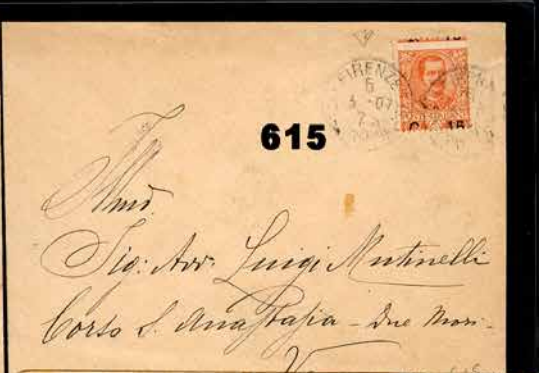 C. 15
FIRENZE
6
3-07
7 S
615
Illmo
Sig: Avv. Luigi Mutinelli
Corso S. Anastasia - Due Mori -
V